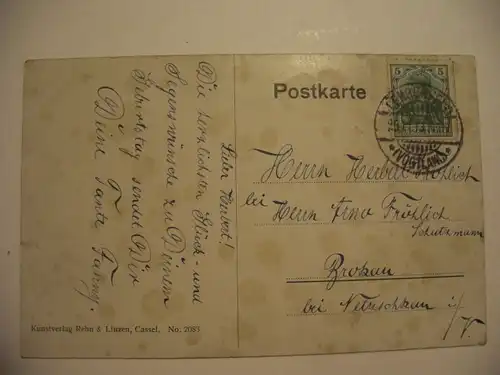 Lieber Herbert!
Die herzlichsten Glück- und
Segenswünsche zu Deinem
Geburtstag sendet Dir
Deine Tante Fanny.
Kunstverlag Rehn & Linzen, Cassel. No. 2085
Postkarte
5 5
(VOGTLAND)
Herrn Herbert Fröhlich
bei Herrn Arno Fröhlich
Schutzmann
Brockau
bei Netzschkau i/
V.